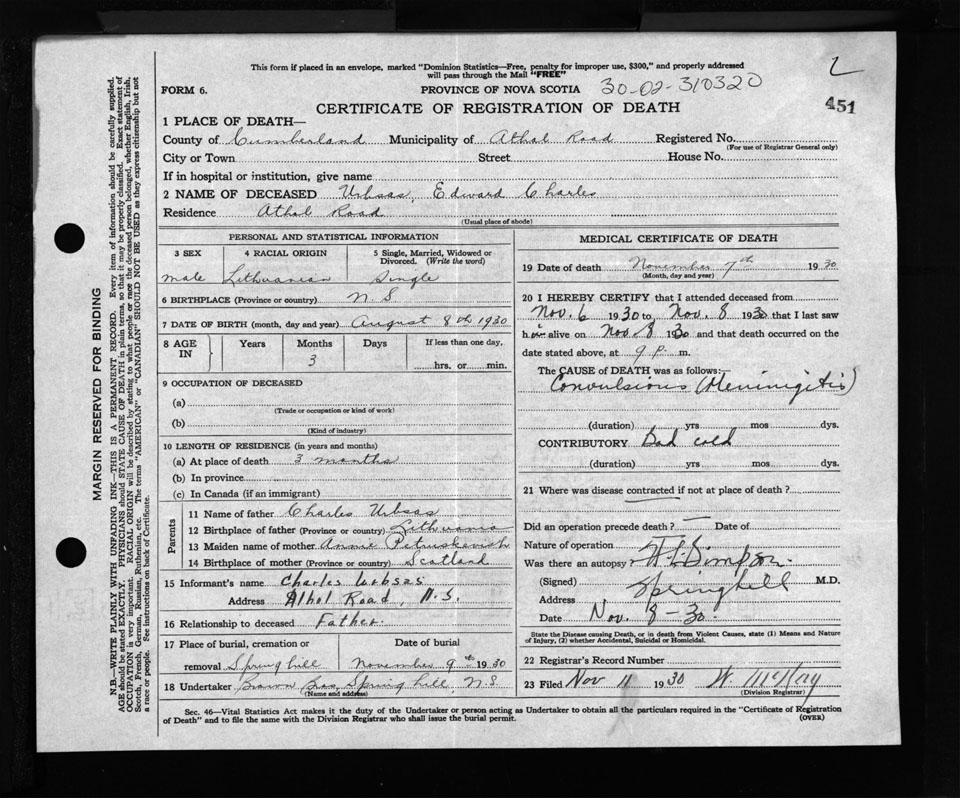 This form if placed in an envelope, marked "Dominion Statistics—Free, penalty for improper use, $300," and properly addressed
will pass through the Mail "FREE"
FORM 6.
PROVINCE OF NOVA SCOTIA 30-02-310320
451
CERTIFICATE OF REGISTRATION OF DEATH
1 PLACE OF DEATH—
County of Cumberland Municipality of Athol Road Registered No.
(For use of Registrar General only)
City or Town Street House No.
If in hospital or institution, give name
2 NAME OF DECEASED Urbsas, Edward Charles
Residence Athol Road
(Usual place of abode)
PERSONAL AND STATISTICAL INFORMATION
3 SEX 4 RACIAL ORIGIN 5 Single, Married, Widowed or
Divorced. (Write the word)
male Lithuanian Single
6 BIRTHPLACE (Province or country) N. S
7 DATE OF BIRTH (month, day and year) August 8th 1930
8 AGE IN Years Months Days If less than one day,
3
hrs. or min.
9 OCCUPATION OF DECEASED
(a)
(Trade or occupation or kind of work)
(b)
(Kind of industry)
10 LENGTH OF RESIDENCE (in years and months)
(a) At place of death 3 months
(b) In province
(c) In Canada (if an immigrant)
Parents
11 Name of father Charles Urbsas
12 Birthplace of father (Province or country) Lithuania
13 Maiden name of mother Annie Petruskevish
14 Birthplace of mother (Province or country) Scotland
15 Informant's name Charles Urbsas
Address Athol Road, N.S.
16 Relationship to deceased Father
17 Place of burial, cremation or Date of burial
removal Springhill November 9th 1930
18 Undertaker Brown Bros, Springhill, N.S
(Name and address)
MEDICAL CERTIFICATE OF DEATH
19 Date of death November 7th 1930
(Month, day and year)
20 I HEREBY CERTIFY that I attended deceased from
Nov. 6 1930 to Nov. 8 1930 that I last saw
him alive on Nov 8 1930 and that death occurred on the
date stated above, at 9 p. m.
The CAUSE of DEATH was as follows:
Convulsions (Meninigitis)
(duration) yrs mos dys.
CONTRIBUTORY Bad cold
(duration) yrs mos dys.
21 Where was disease contracted if not at place of death ?
Did an operation precede death ? — Date of
Nature of operation
Was there an autopsy
(Signed) Simpson M.D.
Address Springhill
Date Nov. 8 - 30.
State the Disease causing Death, or in death from Violent Causes, state (1) Means and Nature
of Injury, (2) whether Accidental, Suicidal or Homicidal.
22 Registrar's Record Number
23 Filed Nov 11 1930 W. McKay
(Division Registrar)
Sec. 46—Vital Statistics Act makes it the duty of the Undertaker or person acting as Undertaker to obtain all the particulars required in the "Certificate of Registration
of Death" and to file the same with the Division Registrar who shall issue the burial permit.
(OVER)
MARGIN RESERVED FOR BINDING
N.B.—WRITE PLAINLY WITH UNFADING INK—THIS IS A PERMANENT RECORD. Every item of information should be carefully supplied.
AGE should be stated EXACTLY. PHYSICIANS should STATE CAUSE OF DEATH in plain terms, so that it may be properly classified. Exact statement of
OCCUPATION is very important. RACIAL ORIGIN will be described by stating to what people or race the deceased person belonged, whether English, Irish,
Scotch, French, German, Russian, Ruthenian, etc. The terms "AMERICAN" or "CANADIAN" SHOULD NOT BE USED as they express citizenship but not
a race or people. See instructions on back of Certificate.